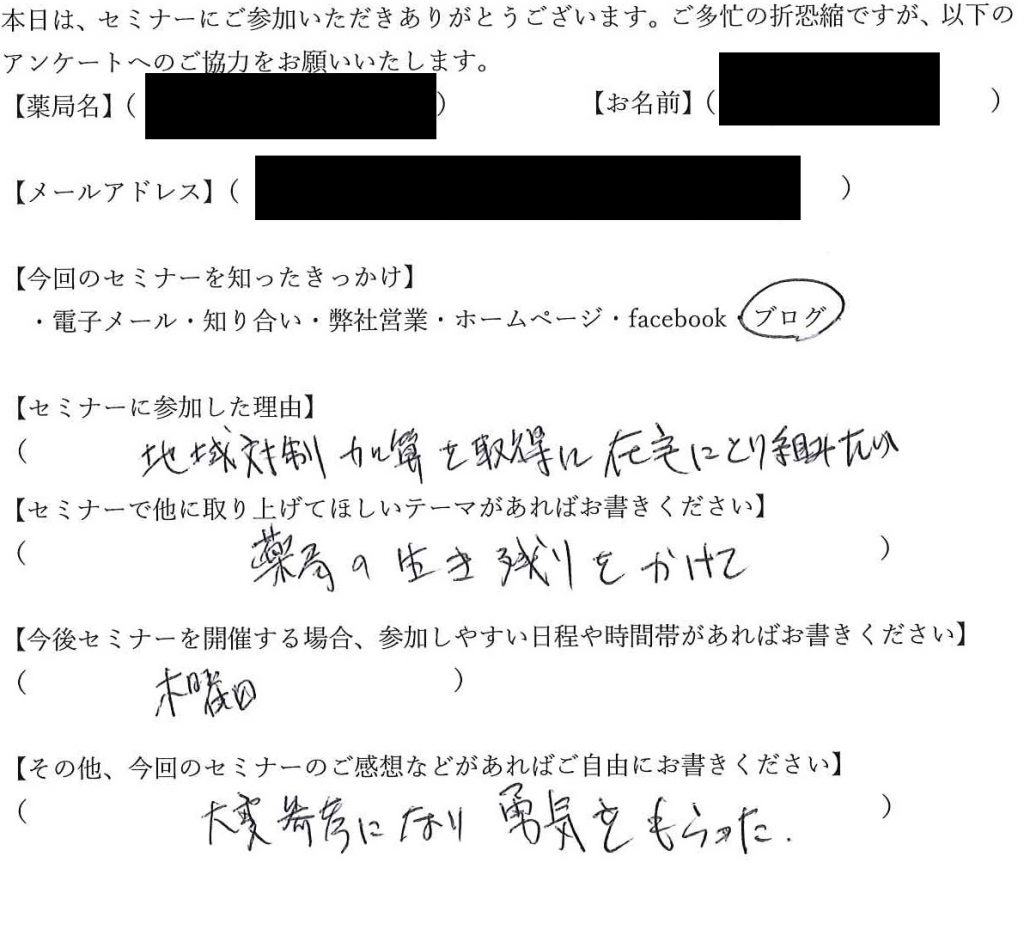 本日は、セミナーにご参加いただきありがとうございます。ご多忙の折恐縮ですが、以下の
アンケートへのご協力をお願いいたします。
【薬局名】( ) 【お名前】( )
【メールアドレス】( )
【今回のセミナーを知ったきっかけ】
・電子メール・知り合い・弊社営業・ホームページ・facebook・ブログ
【セミナーに参加した理由】
( 地域対制加算を取得に在宅にとり組みたい
【セミナーで他に取り上げてほしいテーマがあればお書きください】
( 薬局の生き残りをかけて )
【今後セミナーを開催する場合、参加しやすい日程や時間帯があればお書きください】
( 木曜日 )
【その他、今回のセミナーのご感想などがあればご自由にお書きください】
( 大変参考になり 勇気をもらった. )